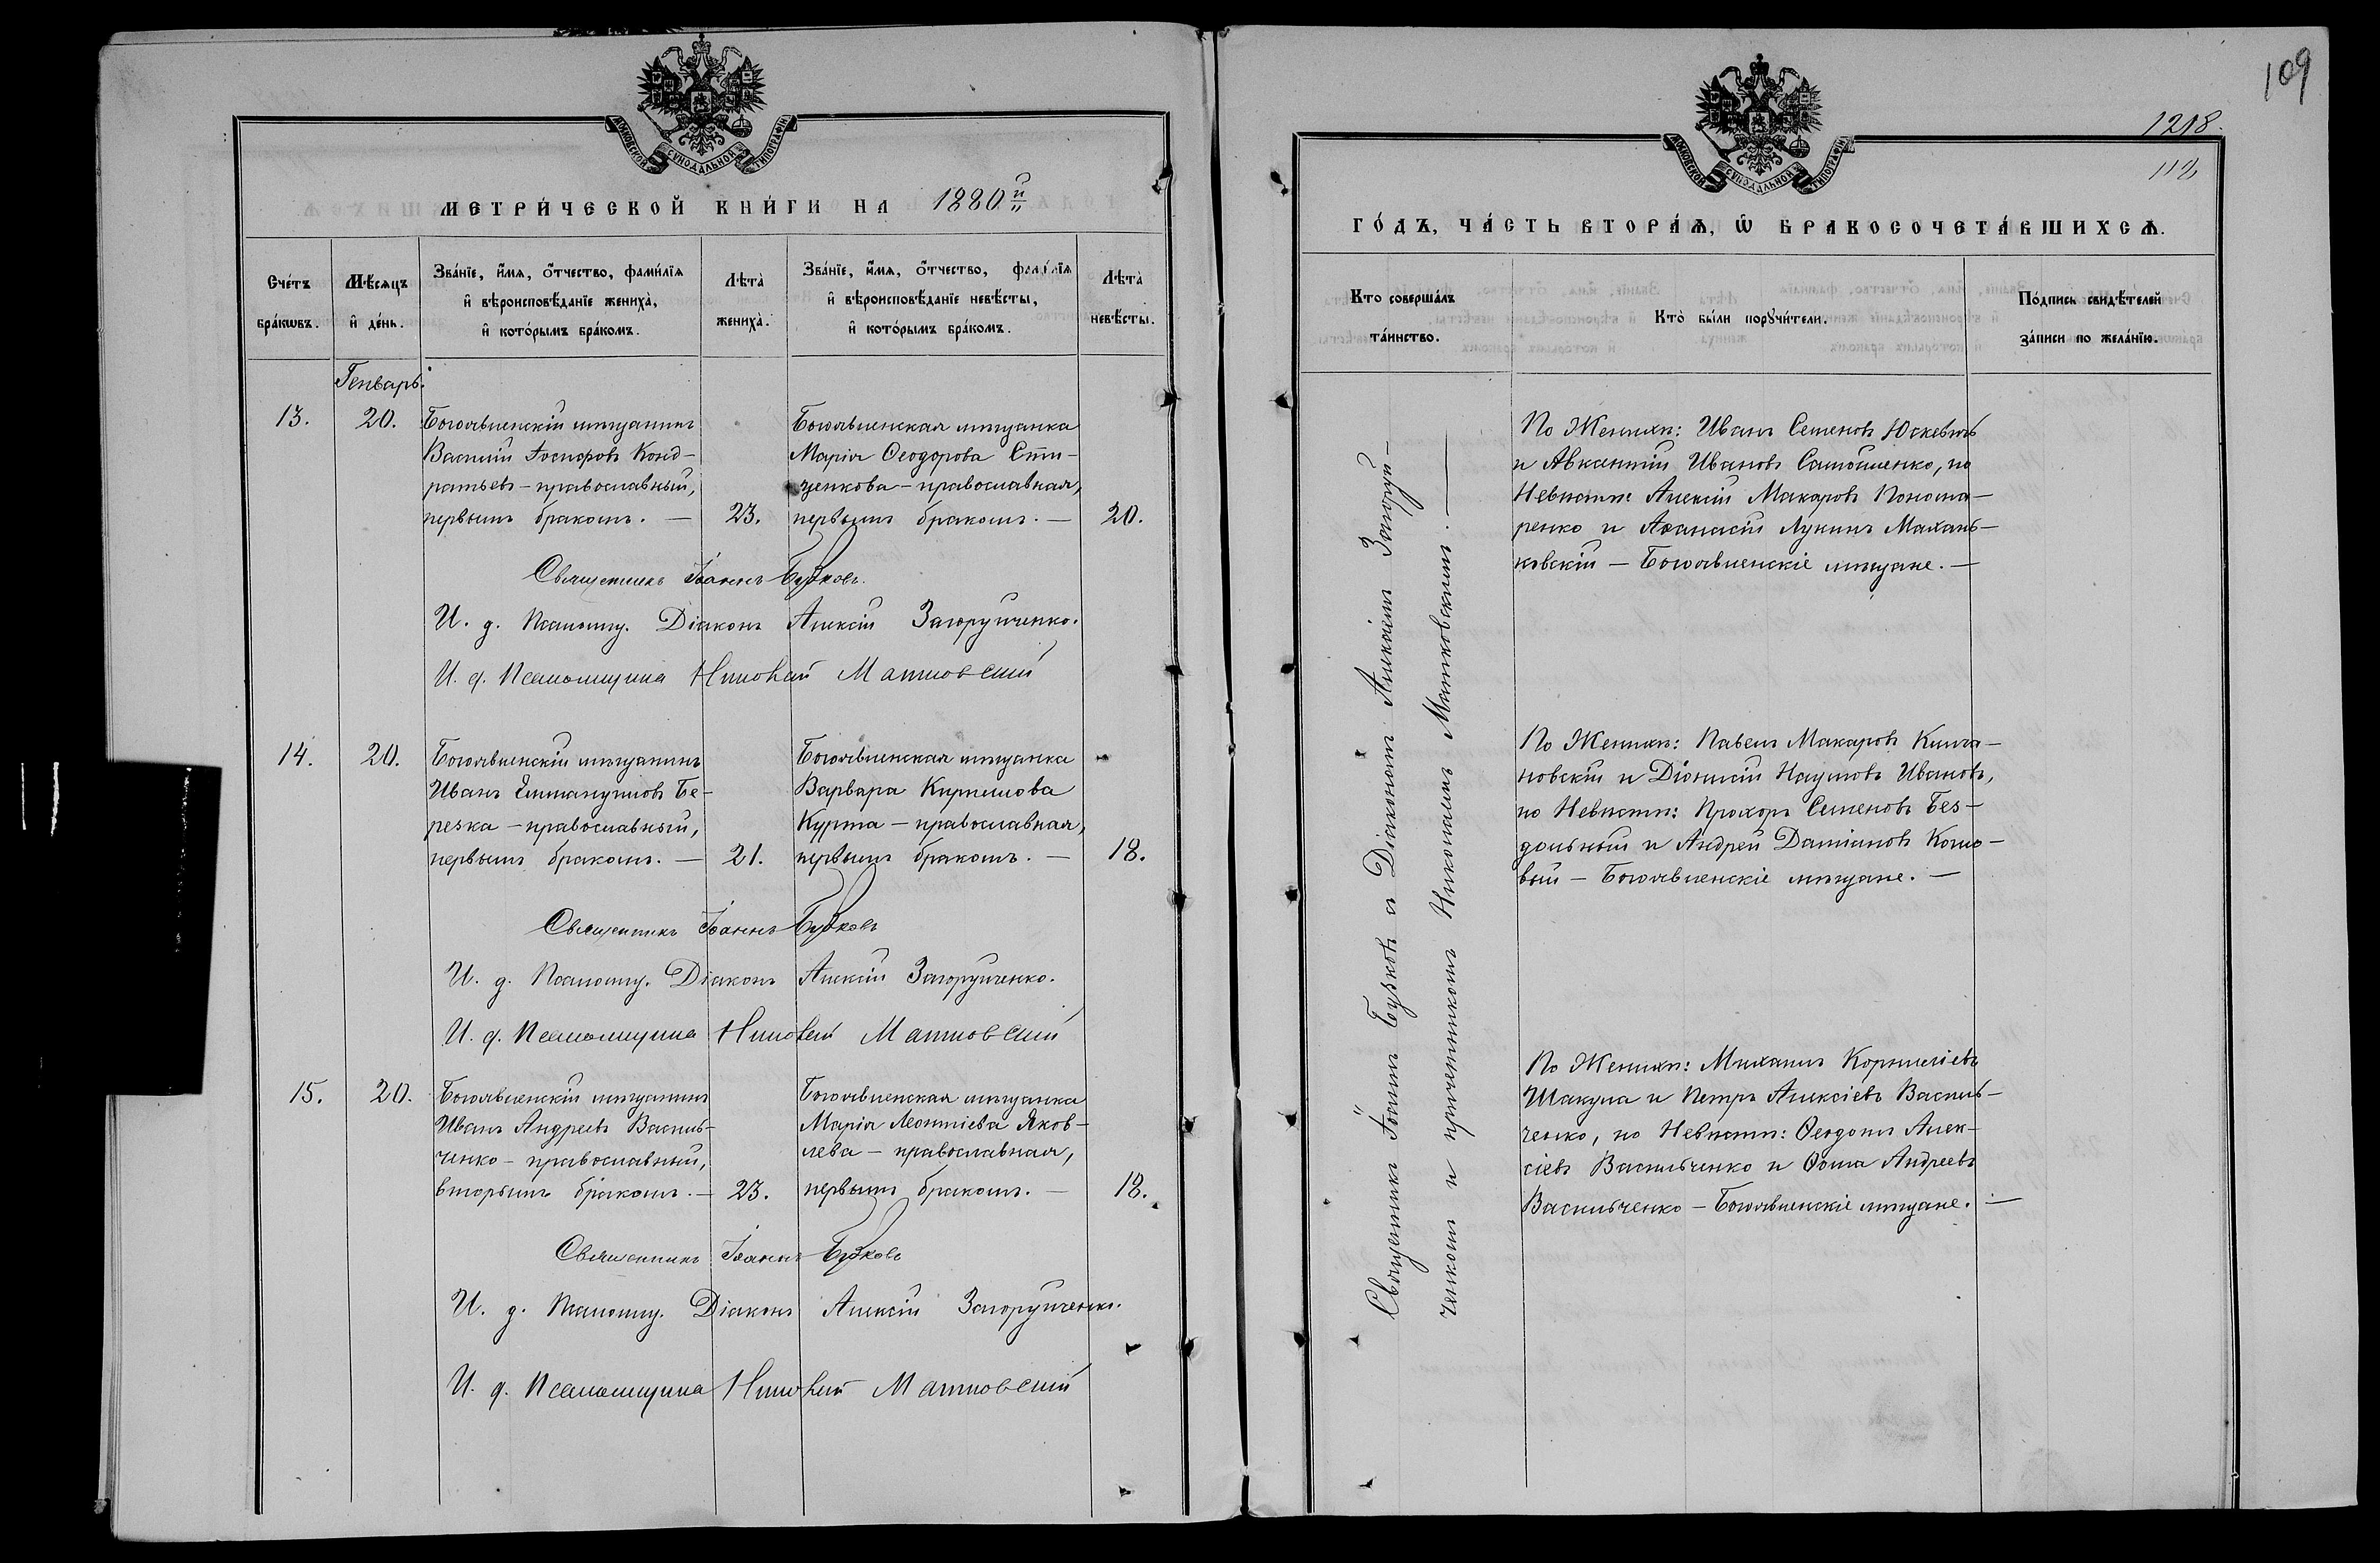 109
1218.
112
МОСКОВСКОЙ СѴНОДАЛЬНОЙ ТИПОГРАФІИ
МЕТРИ́ЧЕСКОЙ КНИ́ГИ НА 1880 й
Сче́тъ бра́кѡвъ.
Мѣ́сяцъ и҆ де́нь.
Зва́нїе, и҆́мѧ, ѻ҆́тчество, фами́лїѧ
и҆ вѣроисповѣ́данїе жениха̀,
и҆ кото́рымъ бра́комъ.
Лѣта̀ жениха̀.
Зва́нїе, и҆́мѧ, ѻ҆́тчество, фами́лїѧ
и҆ вѣроисповѣ́данїе невѣ́сты,
и҆ кото́рымъ бра́комъ.
Лѣта̀ невѣ́сты.
Генварь.
13. 20.
Богоявленскій мѣщанинъ
Василій Іосифовъ Конд-
ратьевъ – православный,
первымъ бракомъ. — 23.
Богоявленская мѣщанка
Марія Ѳеодорова
ченкова – православная,
первымъ бракомъ. — 20.
Священникъ Іоаннъ Бубковъ.
И. д. Псаломщ. Діаконъ Алексій Загоруйченко.
И. д. Псаломщика Николай Матковскій
14. 20.
Богоявленскій мѣщанинъ
Иванъ Еммануиловъ Бе-
резка – православный,
первымъ бракомъ. — 21.
Богоявленская мѣщанка
Варвара Кириллова
Курта – православная,
первымъ бракомъ. — 18.
Священникъ Іоаннъ Бубковъ
И. д. Псаломщ. Діаконъ Алексій Загоруйченко.
И. д. Псаломщика Николай Матковскій
15. 20.
Богоявленскій мѣщанинъ
Иванъ Андреевъ Василь-
ченко – православный,
вторымъ бракомъ. — 23.
Богоявленская мѣщанка
Марія Леонтіева Яков-
лева – православная,
первымъ бракомъ. — 18.
Священникъ Іоаннъ Бубковъ
И. д. Псаломщ. Діаконъ Алексій Загоруйченко.
И. д. Псаломщика Николай Матковскій
МОСКОВСКОЙ СѴНОДАЛЬНОЙ ТИПОГРАФІИ
ГО́ДЪ, ЧА́СТЬ ВТОРА́Ѧ, Ѽ БРАКОСОЧЕТА́ВШИХСѦ.
Кто̀ соверша́лъ
та́инство.
Кто̀ бы́ли порꙋчи́тели.
По́дпись свидѣ́телей
за́писи по жела́нїю.
Священникъ Іоаннъ Бубковъ съ Діакономъ Алексіемъ Загоруй-
ченкомъ и причетникомъ Николаемъ Матковскимъ. —
По Женихѣ: Иванъ Семеновъ Юскевичъ
и Авксентій Ивановъ Самошенко, по
Невѣстѣ: Алексій Макаровъ Понома-
ренко и Аѳанасій Лукинъ Махань-
ковскій – Богоявленскіе мѣщане. —
По Женихѣ: Павелъ Макаровъ
новскій и Діонисій Наумовъ Ивановъ,
по Невѣстѣ: Прохоръ Семеновъ Без-
дольный и Андрей Даміановъ Кошо-
вый – Богоявленскіе мѣщане. —
По Женихѣ: Михаилъ Корниліевъ
Шакула и Петръ Алексіевъ Василь-
ченко, по Невѣстѣ: Ѳеодотъ Алек-
сіевъ Васильченко и Ѳома Андреевъ
Васильченко – Богоявленскіе мѣщане. —